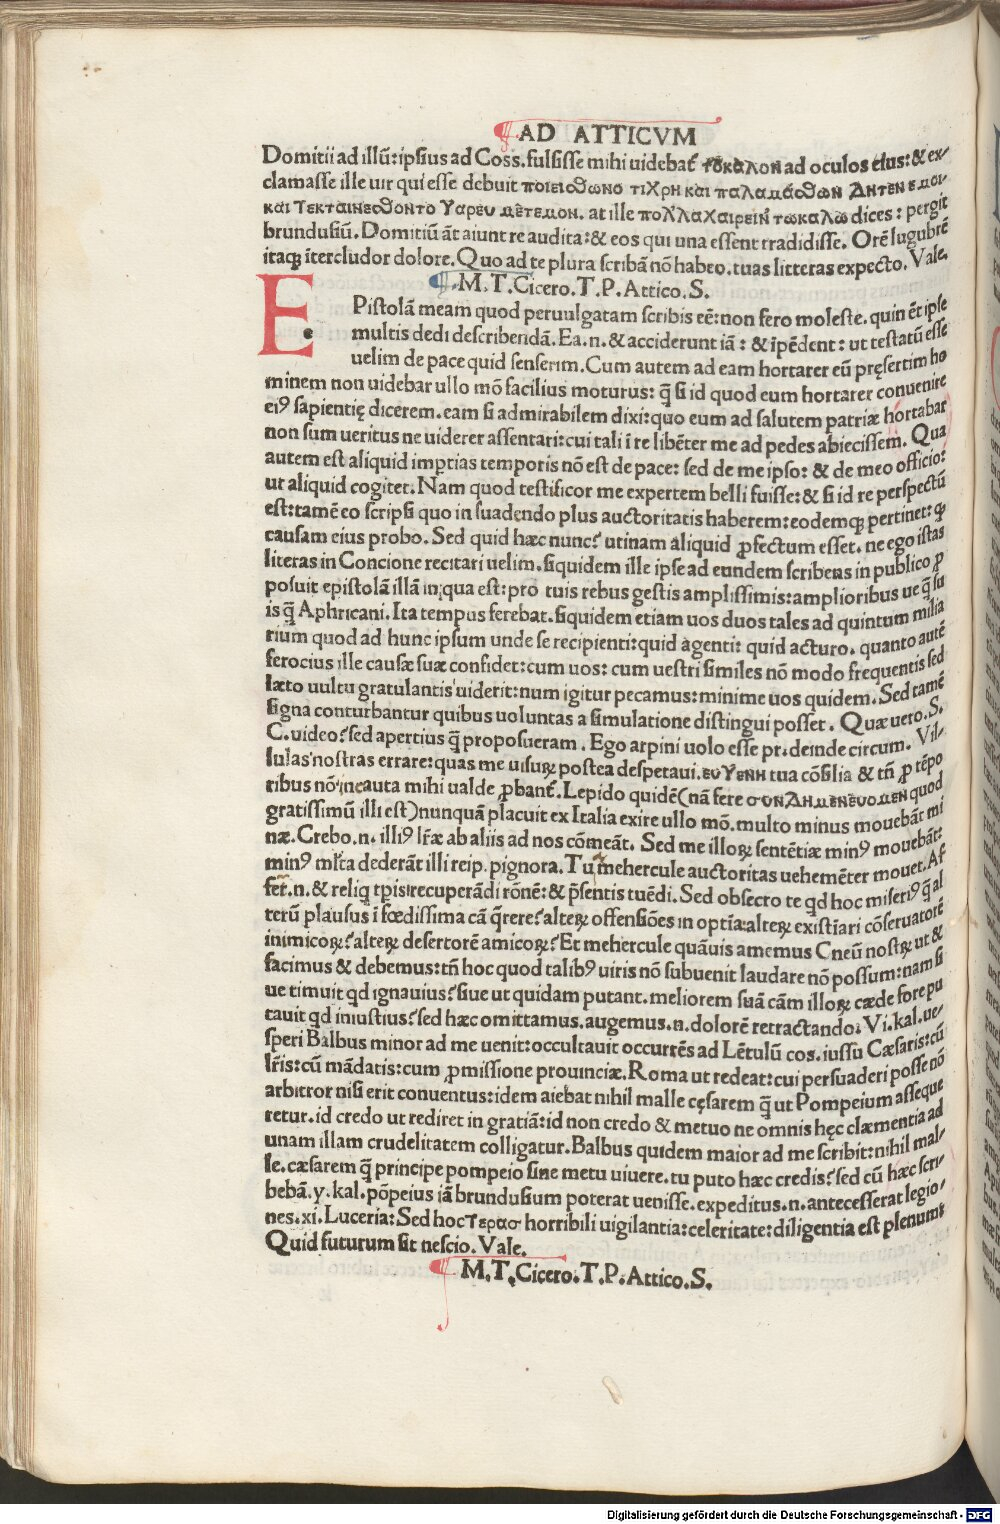 AD ATTICVM
Domitii ad illū: ipsius ad Coss. fulsisse mihi uidebat̄ τὸκαλον ad oculos eius: & ex-
clamasse ille uir qui esse debuit
και τεκταινεσθοντο at ille πολλαχαιρειν τωκαλω dices: pergit
brundusiū. Domitiū āt aiunt re audita: & eos qui una essent tradidisse. Orē lugubrē
itaqꝫ ītercludor dolore. Quo ad te plura scribā nō habeo. tuas litteras expecto. Vale.
M. T. Cicero. T. P. Attico. S.
EPistolā meam quod peruulgatam scribis eē: non fero moleste. quin ēt ipse
multis dedi describendā. Ea. n. & acciderunt iā: & īpēdent: ut testatū esse
uelim de pace quid senserim. Cum autem ad eam hortarer eū pręsertim ho
minem non uidebar ullo mō facilius moturus: q̄ si id quod eum hortarer conuenire
eiꝰ sapientię dicerem. eam si admirabilem dixi: quo eum ad salutem patriæ hortabar
non sum ueritus ne uiderer assentari: cui tali ī re libēter me ad pedes abiecissem. Qua
autem est aliquid imptias temporis nō est de pace: sed de me ipso: & de meo officio:
ut aliquid cogitet. Nam quod testificor me expertem belli fuisse: & si id re perspectū
est: tamē eo scripsi quo in suadendo plus auctoritatis haberem: eodemqꝫ pertinet: ꝙ
causam eius probo. Sed quid hæc nunc? utinam aliquid ꝓfectum esset. ne ego istas
literas in Concione recitari uelim. siquidem ille ipse ad eundem scribens in publico ꝓ
posuit epistolā illā in qua est: pro tuis rebus gestis amplissimis: amplioribus ue q̄ su
is q̄ Aphricani. Ita tempus ferebat. siquidem etiam uos duos tales ad quintum milia
rium quod ad hunc ipsum unde se recipienti: quid agenti: quid acturo. quanto autē
ferocius ille causæ suæ confidet: cum uos: cum uestri similes nō modo frequentis sed
læto uultu gratulantis uiderit: num igitur pecamus: minime uos quidem. Sed tamē
signa conturbantur quibus uoluntas a simulatione distingui posset. Quæ uero. S.
C. uideo? sed apertius q̄ proposueram. Ego arpini uolo esse pr. deinde circum. Vil-
lulas nostras errare: quas me uisurꝝ postea despetaui. ευγενη tua cōsilia & tn̄ ꝓ tēpo
ribus nō incauta mihi ualde ꝓbant̄. Lepido quidē (nā fere συνδημενευομεν quod
gratissimū illi est) nunquā placuit ex Italia exire ullo mō. multo minus mouebāt mi
næ. Crebo. n. illiꝰ lr̄æ ab aliis ad nos cōmeāt. Sed me illoꝝ sentētiæ minꝰ mouebāt:
minꝰ ml̄ta dederāt illi reip. pignora. Tu mehercule auctoritas uehemēter mouet. Af
fert. n. & reliq̄ tp̄is recuperādi rōnē: & p̄sentis tuēdi. Sed obsecro te qd hoc miseriꝰ q̄ al
terū plausus ī fœdissima cā q̄rere? alteꝝ offensiōes in optīa: alteꝝ existīari cōseruatorē
inimicoꝝ? alteꝝ desertorē amicoꝝ? Et mehercule quāuis amemus Cneū nostꝝ ut &
facimus & debemus: tn̄ hoc quod talibꝰ uiris nō subuenit laudare nō possum: nam si
ue timuit qd ignauius? siue ut quidam putant. meliorem suā cām illoꝝ cæde fore pu
tauit qd iniustius? sed hæc omittamus. augemus. n. dolorē retractando. Vi. kal. ue-
speri Balbus minor ad me uenit: occultauit occurrēs ad Lētulū cos. iussu Cæsaris: cū
lr̄is: cū mādatis: cum ꝓmissione prouinciæ. Roma ut redeat: cui persuaderi posse nō
arbitror nisi erit conuentus: idem aiebat nihil malle cęsarem q̄ ut Pompeium asseque
retur. id credo ut rediret in gratiā: id non credo & metuo ne omnis hęc clæmentia ad
unam illam crudelitatem colligatur. Balbus quidem maior ad me scribit: nihil mal-
le. cæsarem q̄ principe pompeio sine metu uiuere. tu puto hæc credis? sed cū hæc scri-
bebā. y. kal. pōpeius iā brundusium poterat uenisse. expeditus. n. antecesserat legio-
nes. xi. Luceria: Sed hoc τερασ horribili uigilantia: celeritate: diligentia est plenum:
Quid futurum sit nescio. Vale.
M. T. Cicero. T. P. Attico. S.
Digitalisierung gefördert durch die Deutsche Forschungsgemeinschaft - DFG